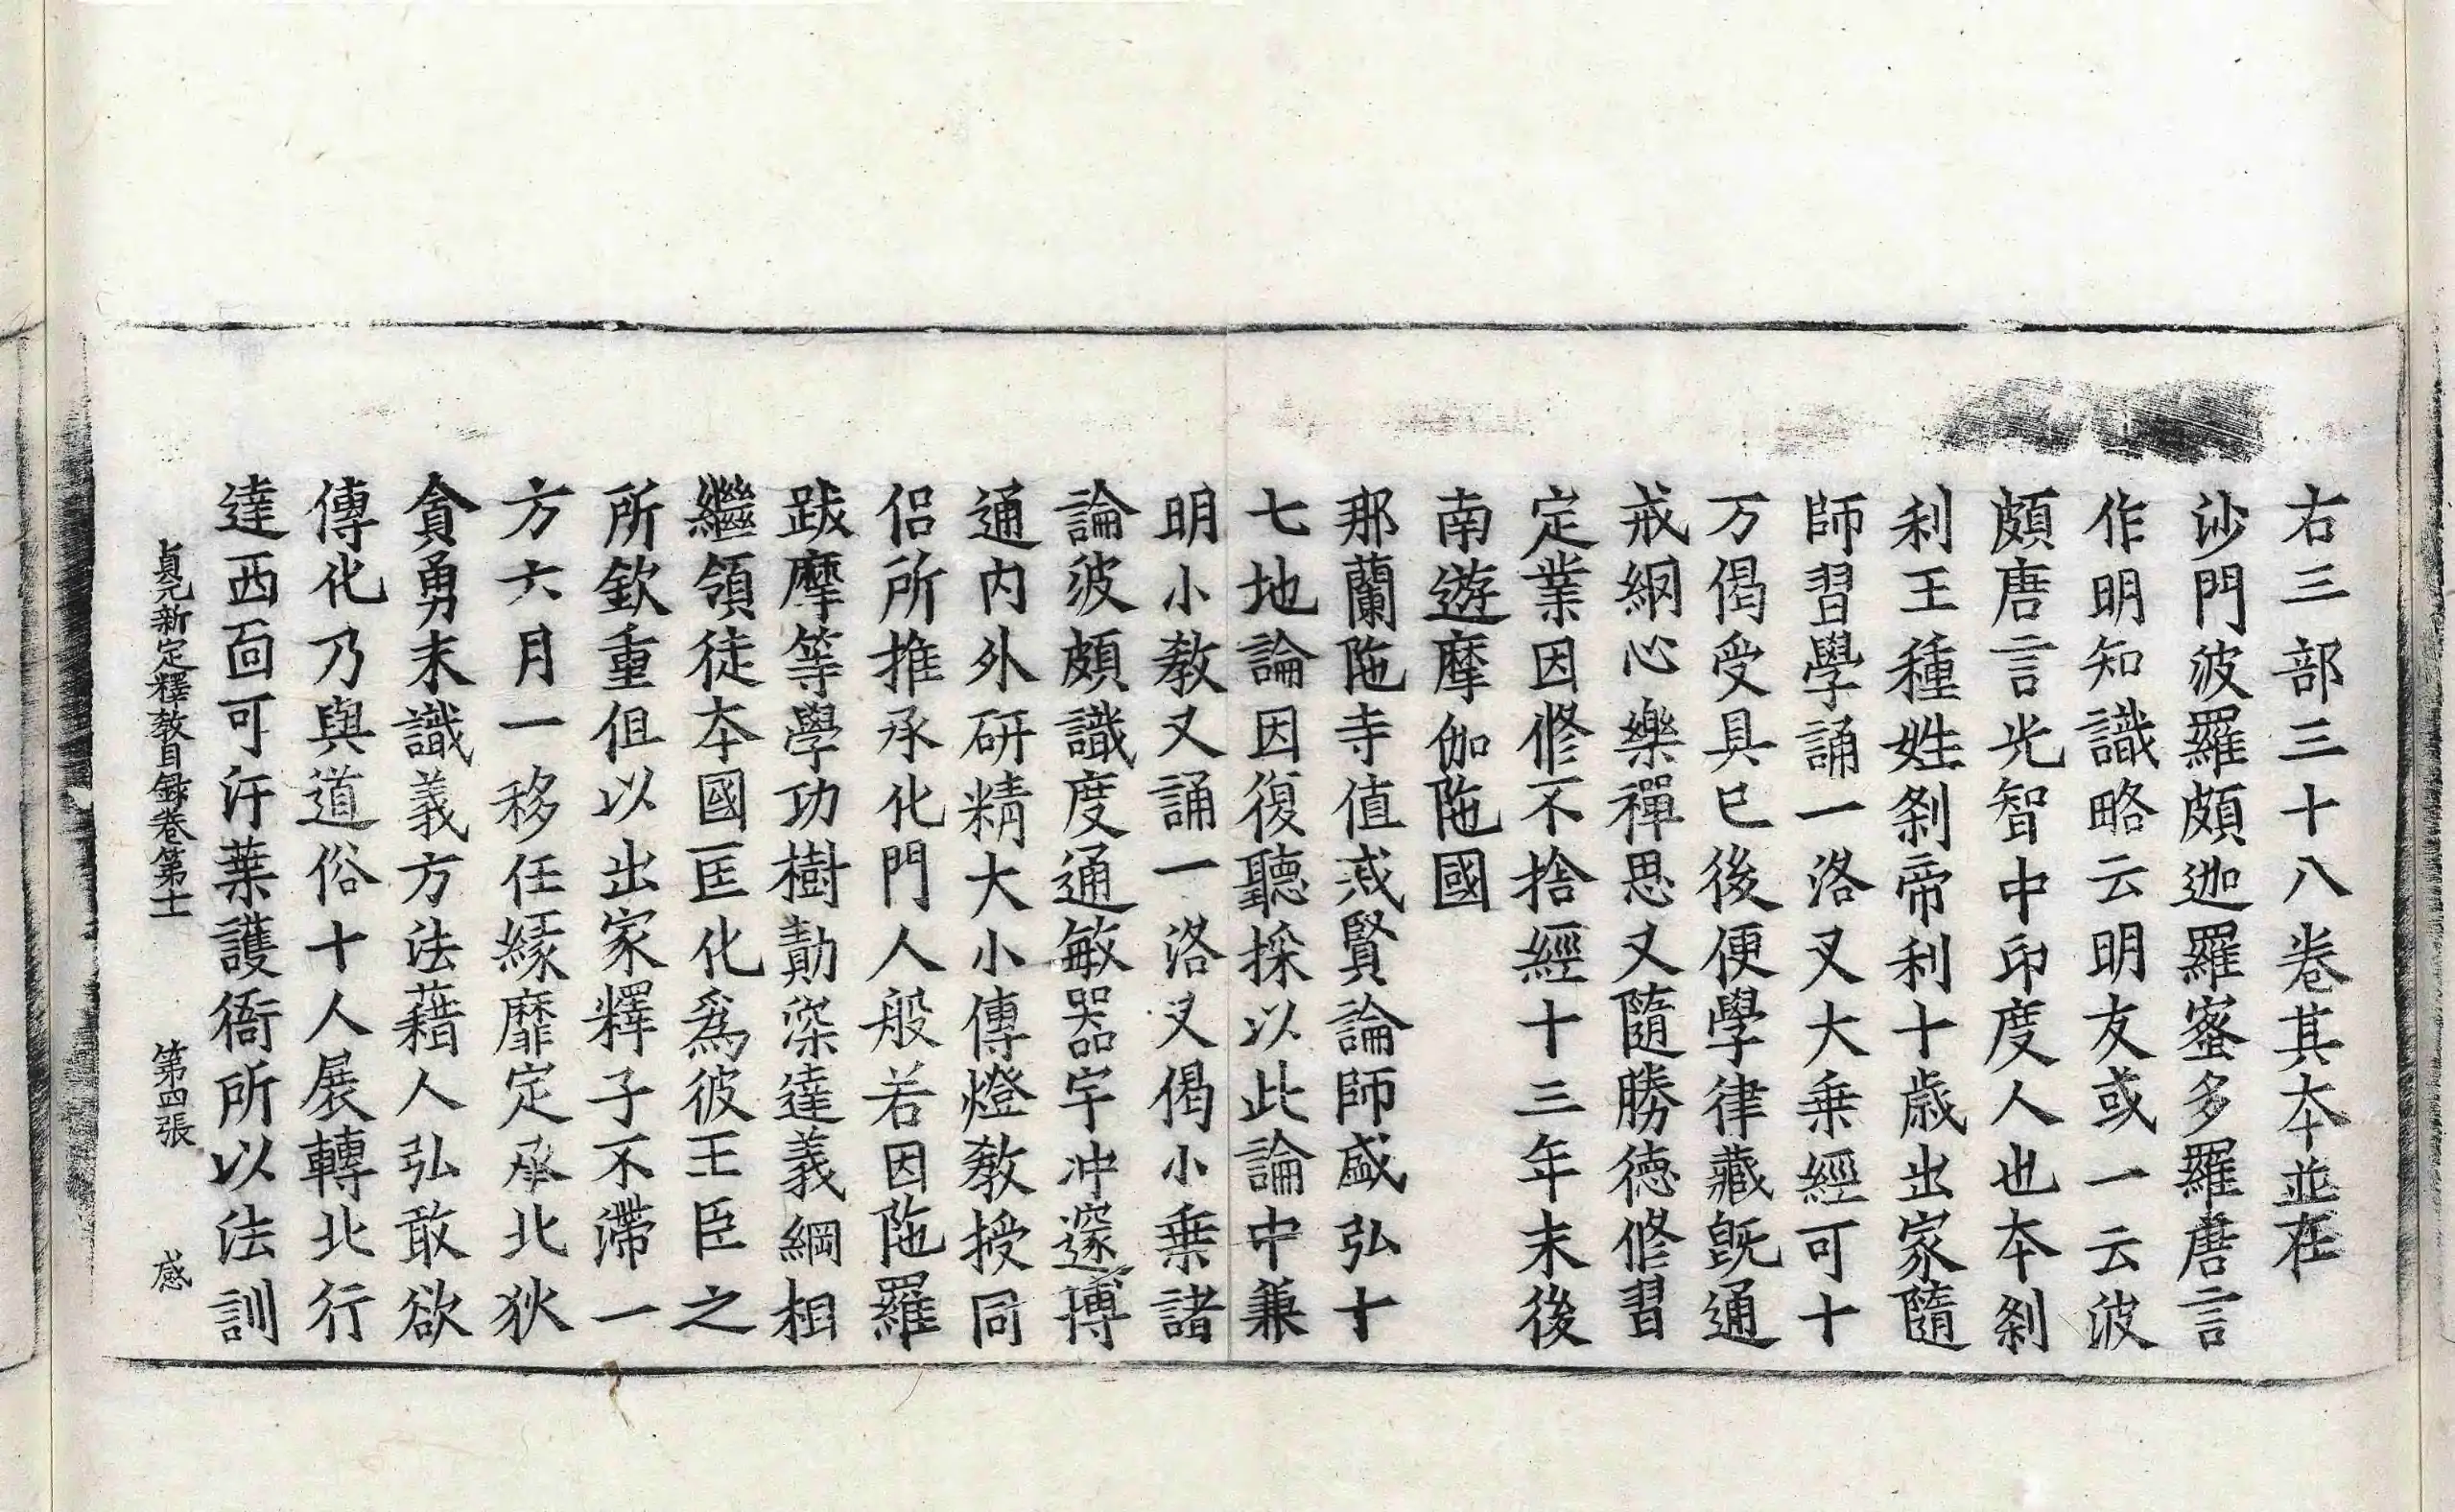 右三部三十八卷其本並在
沙門波羅頗迦羅蜜多羅唐言
作明知識略云明友或一云波
頗唐言光智中印度人也本剎
利王種姓剎帝利十歲出家隨
師習學誦一洛叉大乗經可十
万偈受具已後便學律藏旣通
戒網心樂禪思又隨勝德修習
定業因修不捨經十三年末後
南遊摩伽陁國
那蘭陁寺值戒賢論師盛弘十
七地論因復聽採以此論中兼
明小教又誦一洛叉偈小乗諸
論波頗識度通敏器宇冲邃博
通內外研精大小傳燈教授同
侶所推承化門人般若因陁羅
跋摩等學功樹勳深達義綱相
繼領徒本國匡化爲彼王臣之
所欽重但以出家釋子不滯一
方六月一移任緣靡定承北狄
貪勇未識義方法藉人弘敢欲
傳化乃與道俗十人展轉北行
達西面可汗葉護衙所以法訓
貞元新定釋教目錄卷第十一 第四張 感